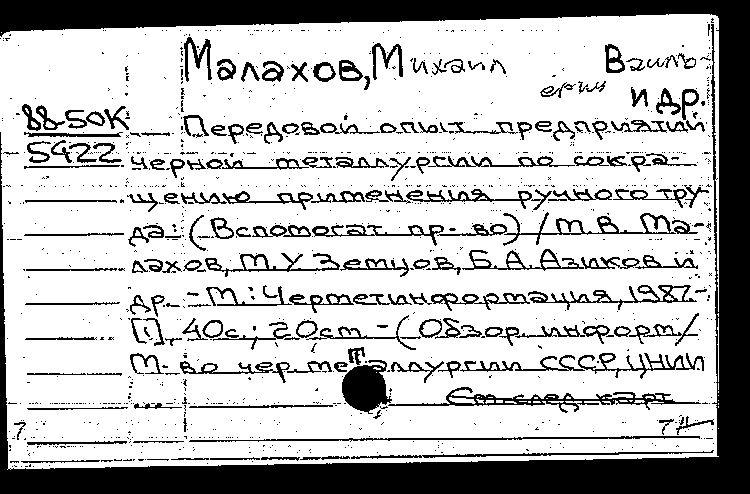 Малахов, Михаил Валь-
ерич
и др.
88-50К
5422
Передовой опыт предприятий
черной металлургии по сокра-
щению применения ручного тру-
да: (Вспомогат. пр-во) / М.В. Ма-
лахов, М.У. Земцов, Б.А. Азиков и
др. - М.: Черметинформация, 1987.-
[1], 40с.; 20см - (Обзор. информ./
М-во чер. металлургии СССР, ЦНИИ
...
См. след. карт
7